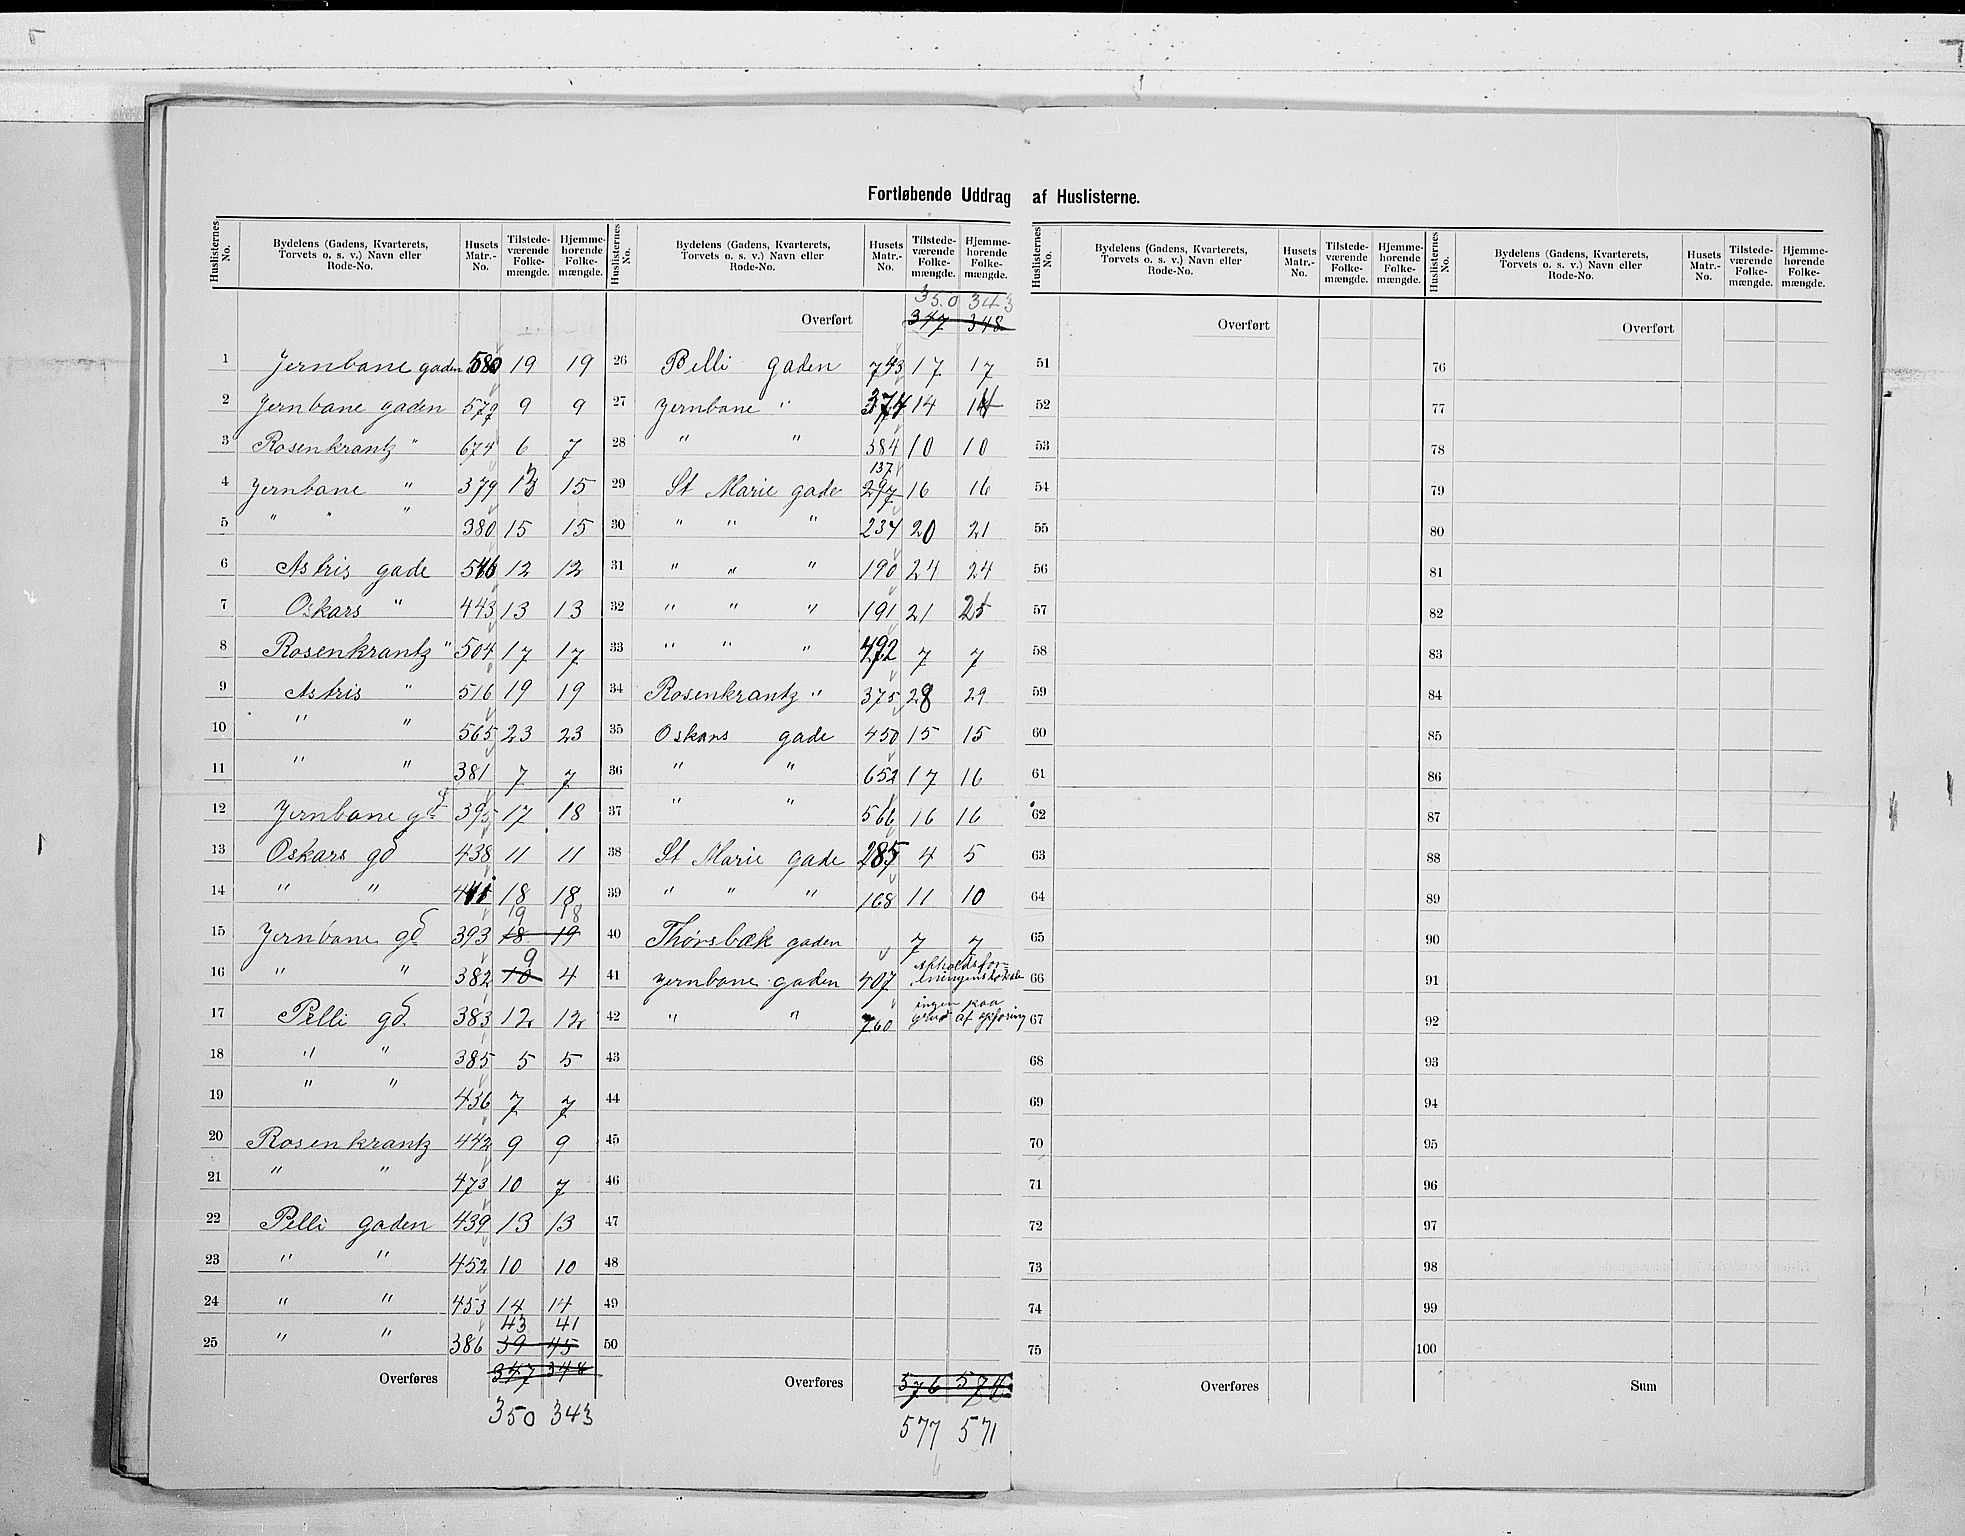 Fortløbende Uddrag af Huslisterne.
Huslisternes No. | Bydelens (Gadens, Kvarterets, Torvets o. s. v.) Navn eller Rode-No. | Husets Matr.-No. | Tilstedeværende Folkemængde. | Hjemmehørende Folkemængde.
1 Jernbane gaden 580 19 19
2 Jernbane gaden 579 9 9
3 Rosenkrantz " 674 6 7
4 Jernbane " 379 13 15
5 " " " 380 15 15
6 Astris gade 546 12 12
7 Oskars " 443 13 13
8 Rosenkrantz " 504 17 17
9 Astris " 516 19 19
10 " " 565 23 23
11 " " 381 7 7
12 Jernbane gd 395 17 18
13 Oskars gd 438 11 11
14 " " 441 18 18
19 18
15 Jernbane gd 393 18 19
9
16 " " 382 10 4
17 Pelli gd. 383 12 12
18 " " 385 5 5
19 " " 436 7 7
20 Rosenkrantz 442 9 9
21 " " 473 10 7
22 Pelli gaden 439 13 13
23 " " 452 10 10
24 " " 453 14 14
43 41
25 " " 386 39 45
Overføres 347 348
350 343
Huslisternes No. | Bydelens (Gadens, Kvarterets, Torvets o. s. v.) Navn eller Rode-No. | Husets Matr.-No. | Tilstedeværende Folkemængde. | Hjemmehørende Folkemængde.
350 343
Overført 347 348
26 Pelli gaden 743 17 17
27 Jernbane " 374 14 14
28 " " 384 10 10
137
29 St Marie gade 297 16 16
30 " " " 237 20 21
31 " " " 190 24 24
32 " " " 191 21 25
33 " " " 492 7 7
34 Rosenkrantz " 375 28 29
35 Oskars gade 450 15 15
36 " " 652 17 16
37 " " 566 16 16
38 St Marie gade 285 4 5
39 " " " 168 11 10
40 Thørsbæk gaden 7 7
41 Jernbane gaden 407 Afholdsforeningens Lokale
42 " " 760 ingen paa grund af opføring
43
44
45
46
47
48
49
50
Overføres 576 574
577 571
Huslisternes No. | Bydelens (Gadens, Kvarterets, Torvets o. s. v.) Navn eller Rode-No. | Husets Matr.-No. | Tilstedeværende Folkemængde. | Hjemmehørende Folkemængde.
Overført
51
52
53
54
55
56
57
58
59
60
61
62
63
64
65
66
67
68
69
70
71
72
73
74
75
Overføres
Huslisternes No. | Bydelens (Gadens, Kvarterets, Torvets o. s. v.) Navn eller Rode-No. | Husets Matr.-No. | Tilstedeværende Folkemængde. | Hjemmehørende Folkemængde.
Overført
76
77
78
79
80
81
82
83
84
85
86
87
88
89
90
91
92
93
94
95
96
97
98
99
100
Sum